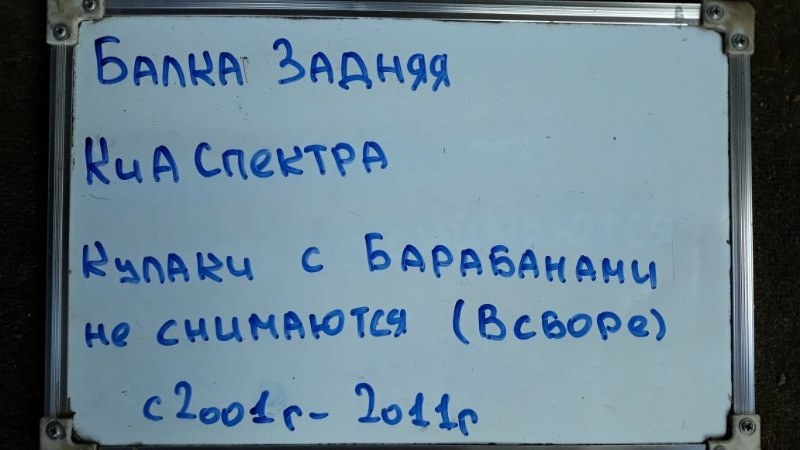 Балка Задняя
Киа Спектра
Кулаки с Барабанами
не снимаются (Всборе)
с 2001г- 2011г